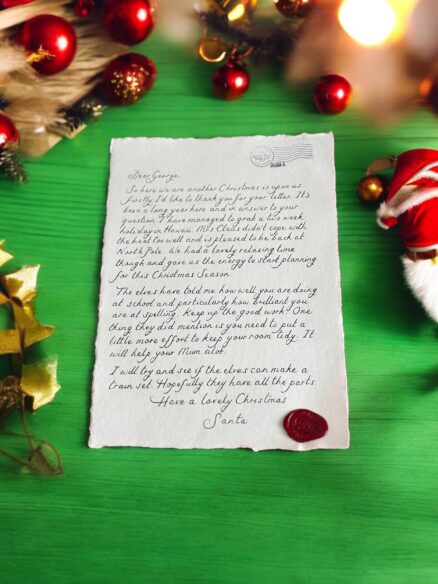 Dear George,
So here we are another Christmas is upon us.
firstly I'd like to thank you for your letter. It's
been a long year here and in answer to your
question I have managed to grab a two week
holiday in Hawaii. Mrs Claus didn't cope with
the heat too well and is pleased to be back at
North Pole. We had a lovely relaxing time
though and gave us the energy to start planning
for this Christmas Season.
The elves have told me how well you are doing
at school and particularly how brilliant you
are at spelling. Keep up the good work. One
thing they did mention is you need to put a
little more effort to keep your room tidy. It
will help your Mum alot.
I will try and see if the elves can make a
train set. Hopefully they have all the parts.
Have a lovely Christmas
Santa